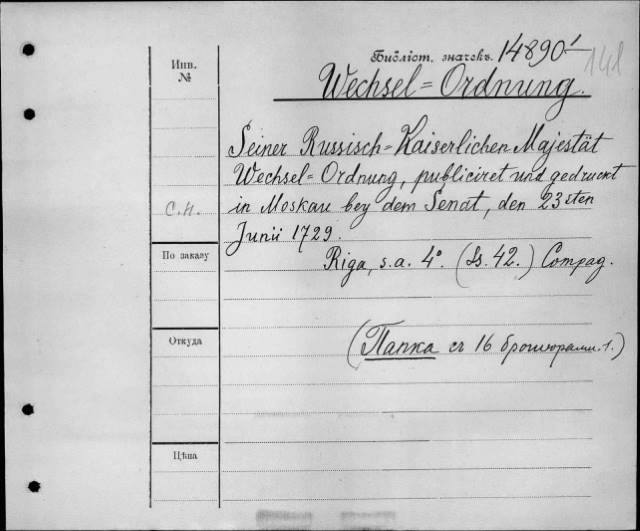 Библіот. значекъ. 14890¹ 141
Инв.
№
Wechsel=Ordnung.
Seiner Russisch=Kaiserlichen Majestät
Wechsel=Ordnung, publiciret und gedruckt
in Moskau bey dem Senat, den 23sten
С.Н.
Junii 1729.
По заказу
Riga, s.a. 4°. (Ss. 42.) Compag.
Откуда
(Папка съ 16 брошюрами. 1.)
Цѣна